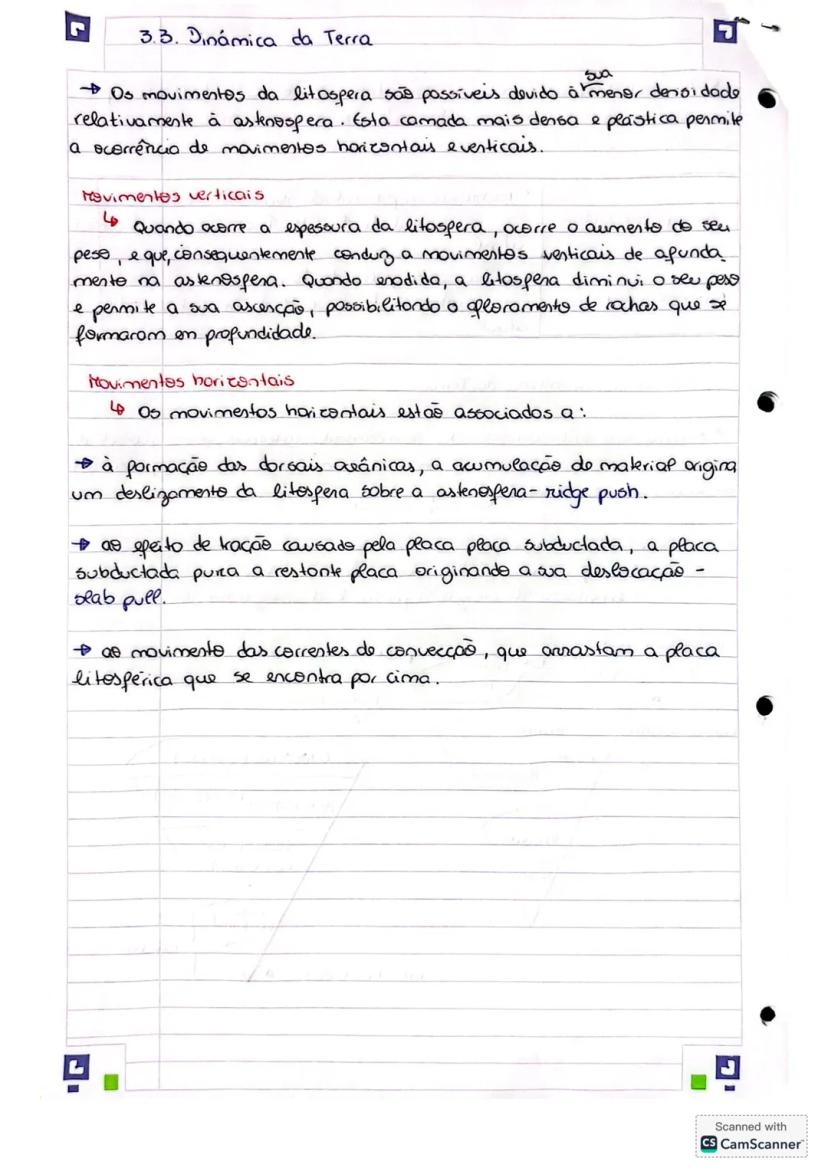 3.3. Dinâmica da Terra
→ Os movimentos da litosfera são possíveis devido à sua menor densidade
relativamente à astenosfera. Esta camada mais densa e plástica permite
a ocorrência de movimentos horizontais e verticais.
Movimentos verticais
↳ Quando ocorre a espessura da litosfera, ocorre o aumento do seu
peso, e que, consequentemente conduz a movimentos verticais de afunda
mento na astenosfera. Quando erodida, a litosfera diminui o seu peso
e permite a sua ascenção, possibilitando o afloramento de rochas que se
formaram em profundidade.
Movimentos horizontais
↳ Os movimentos horizontais estão associados a:
→ à formação das dorsais oceânicas, a acumulação do material origina
um deslizamento da litosfera sobre a astenosfera - ridge push.
→ ao efeito de tração causado pela placa placa subductada, a placa
subductada puxa a restante placa originando a sua deslocação -
slab pull.
→ ao movimento das correntes de convecção, que arrastam a placa
litosférica que se encontra por cima.
Scanned with
CS CamScanner